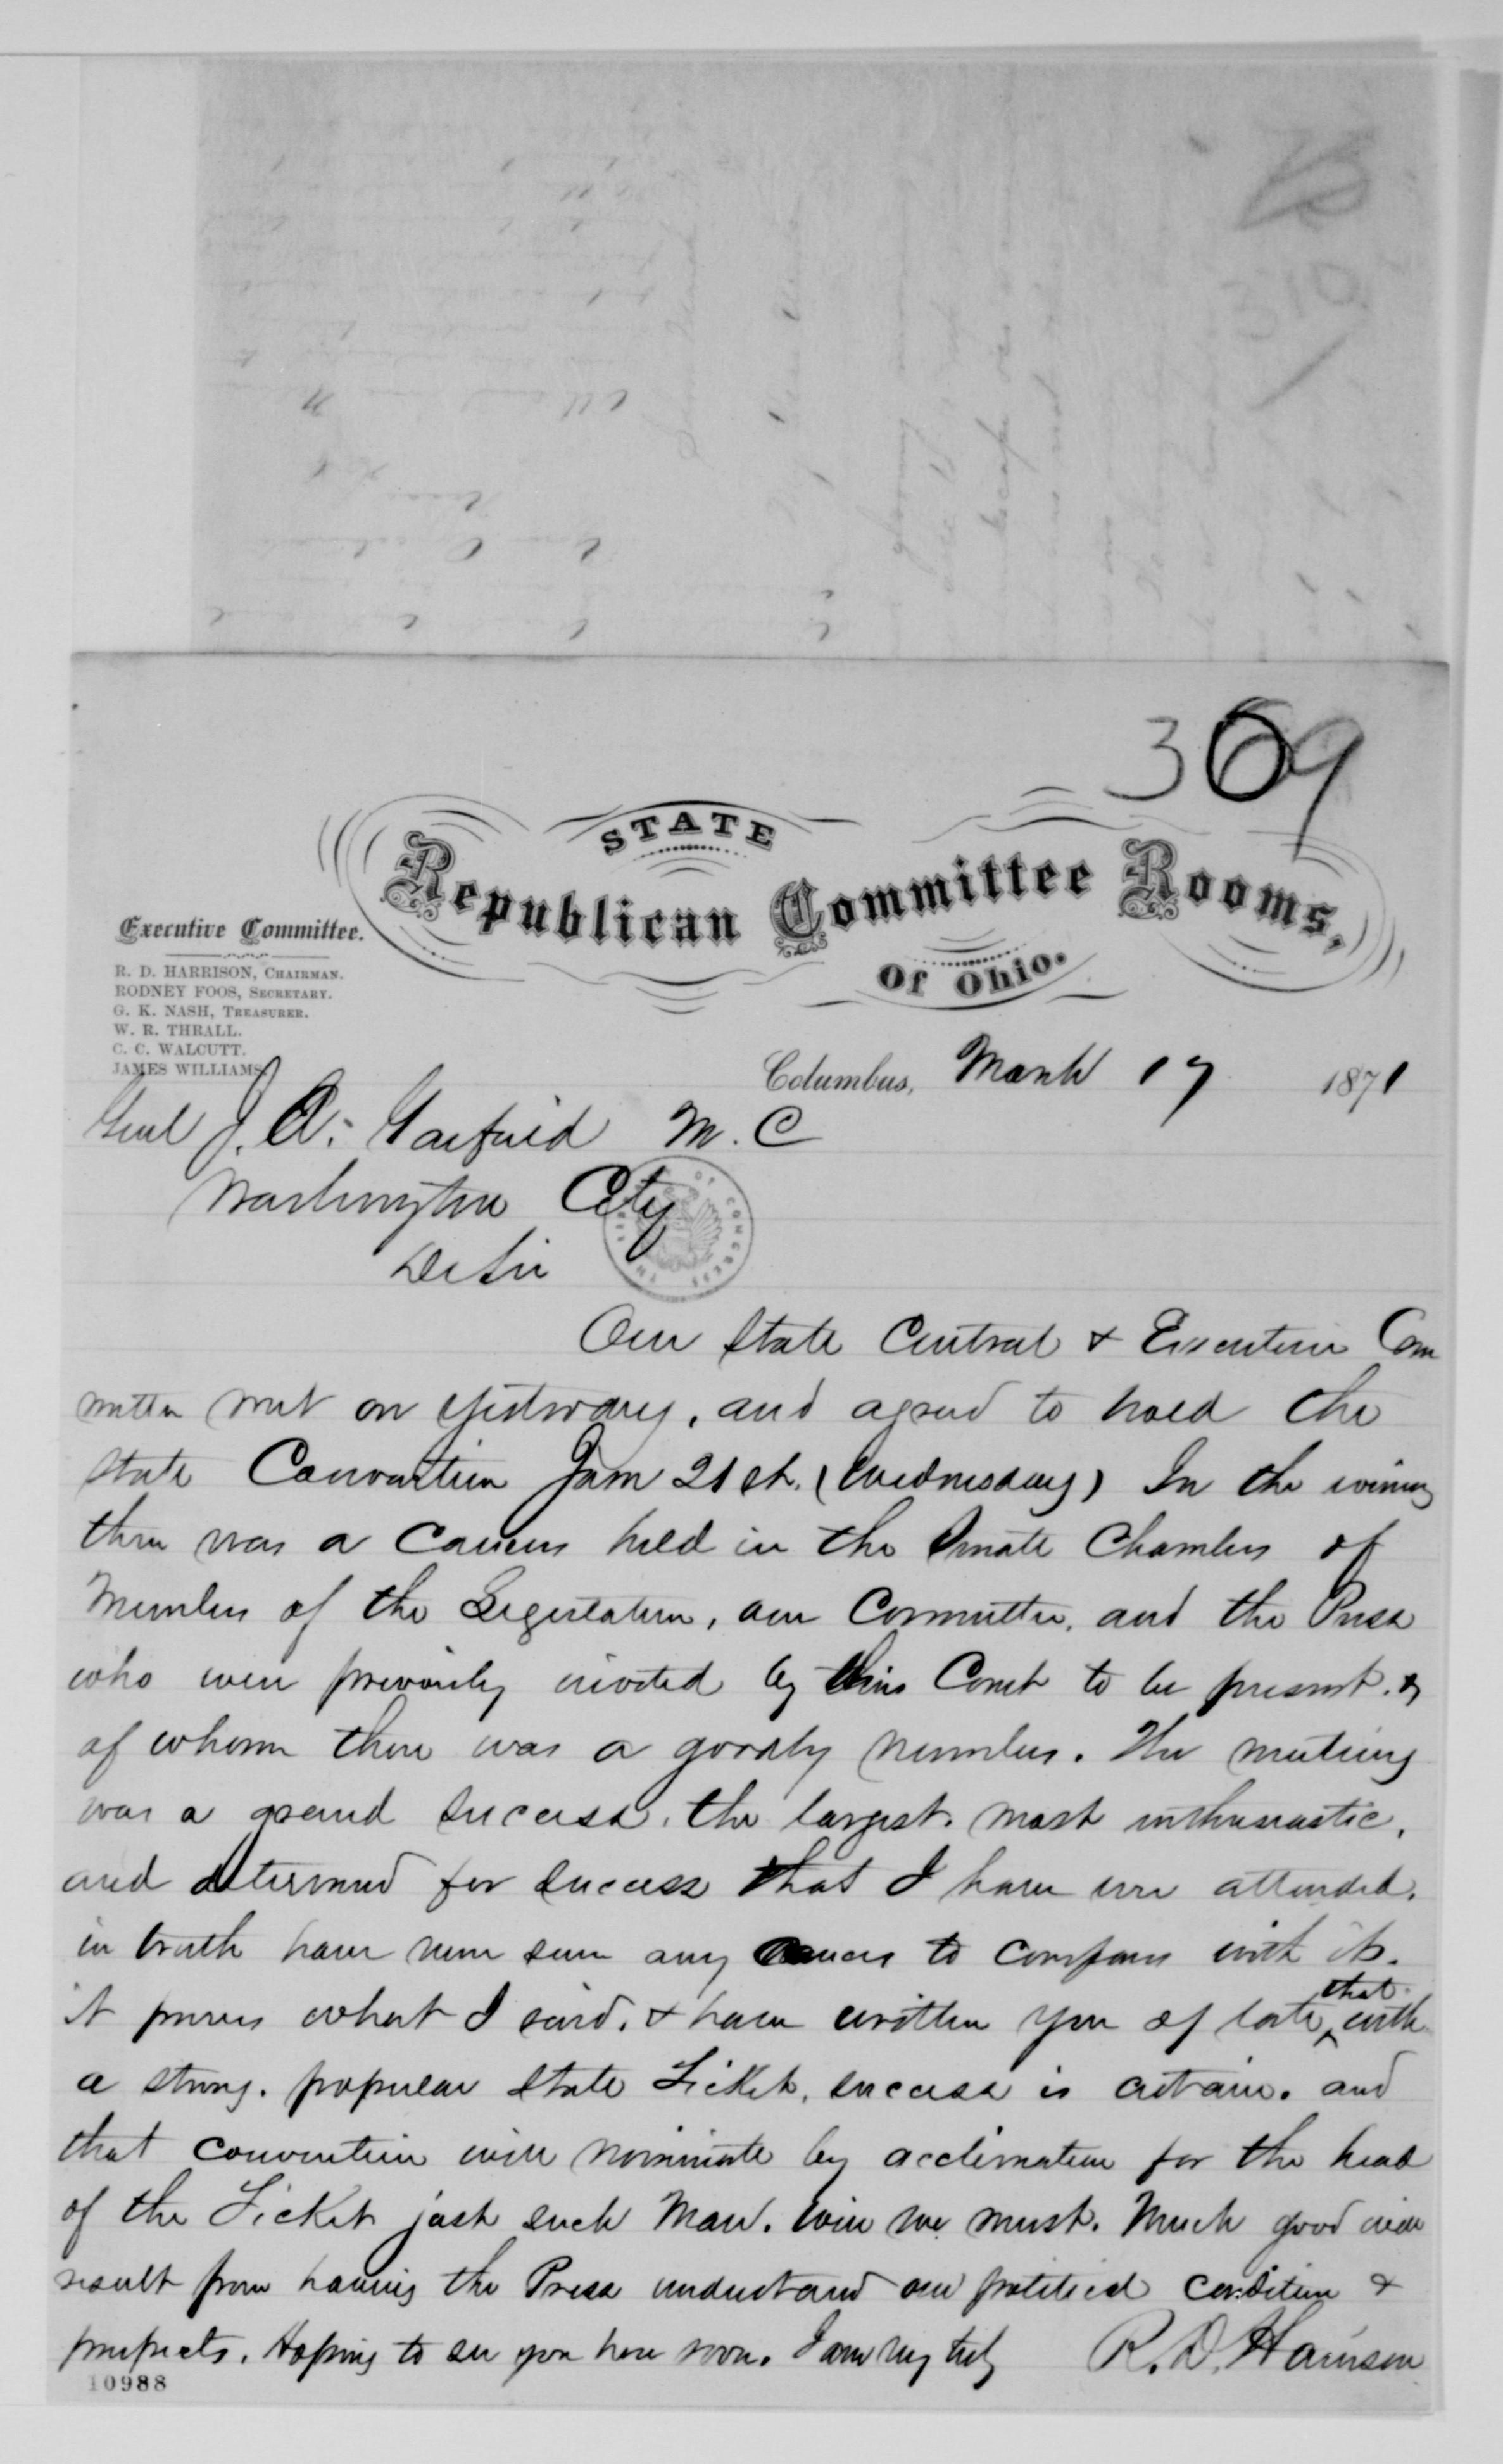 369
STATE
Republican Committee Rooms,
Of Ohio.
Executive Committee.
R. D. HARRISON, CHAIRMAN.
RODNEY FOOS, SECRETARY.
G. K. NASH, TREASURER.
W. R. THRALL.
C. C. WALCUTT.
JAMES WILLIAMS.
Columbus, March 17 1871
Genl J. A. Garfield M. C
Washington City
De Sir
Our State Central & Executive Com
mittee met on yesterday, and agreed to hold the
State Convention June 21st. (Wednesday) In the evening
there was a Caucus held in the Senate Chamber of
Members of the Legislature, our Committee, and the Press
who were previously invited by this Comt to be present. &
of whom there was a goodly number. The meeting
was a grand success. the largest. most enthusiastic,
and determined for success that I have ever attended.
in truth have never seen any caucus to compare with it.
it proves what I said, & have written you of late, that with
a strong. popular State Ticket, success is certain. and
that convention will nominate by acclimation for the head
of the Ticket just such Man. Win we must. Much good will
result from having the Press understand our political condition &
prospects. Hoping to see you here soon. I am very truly R. D. Harrison
10988